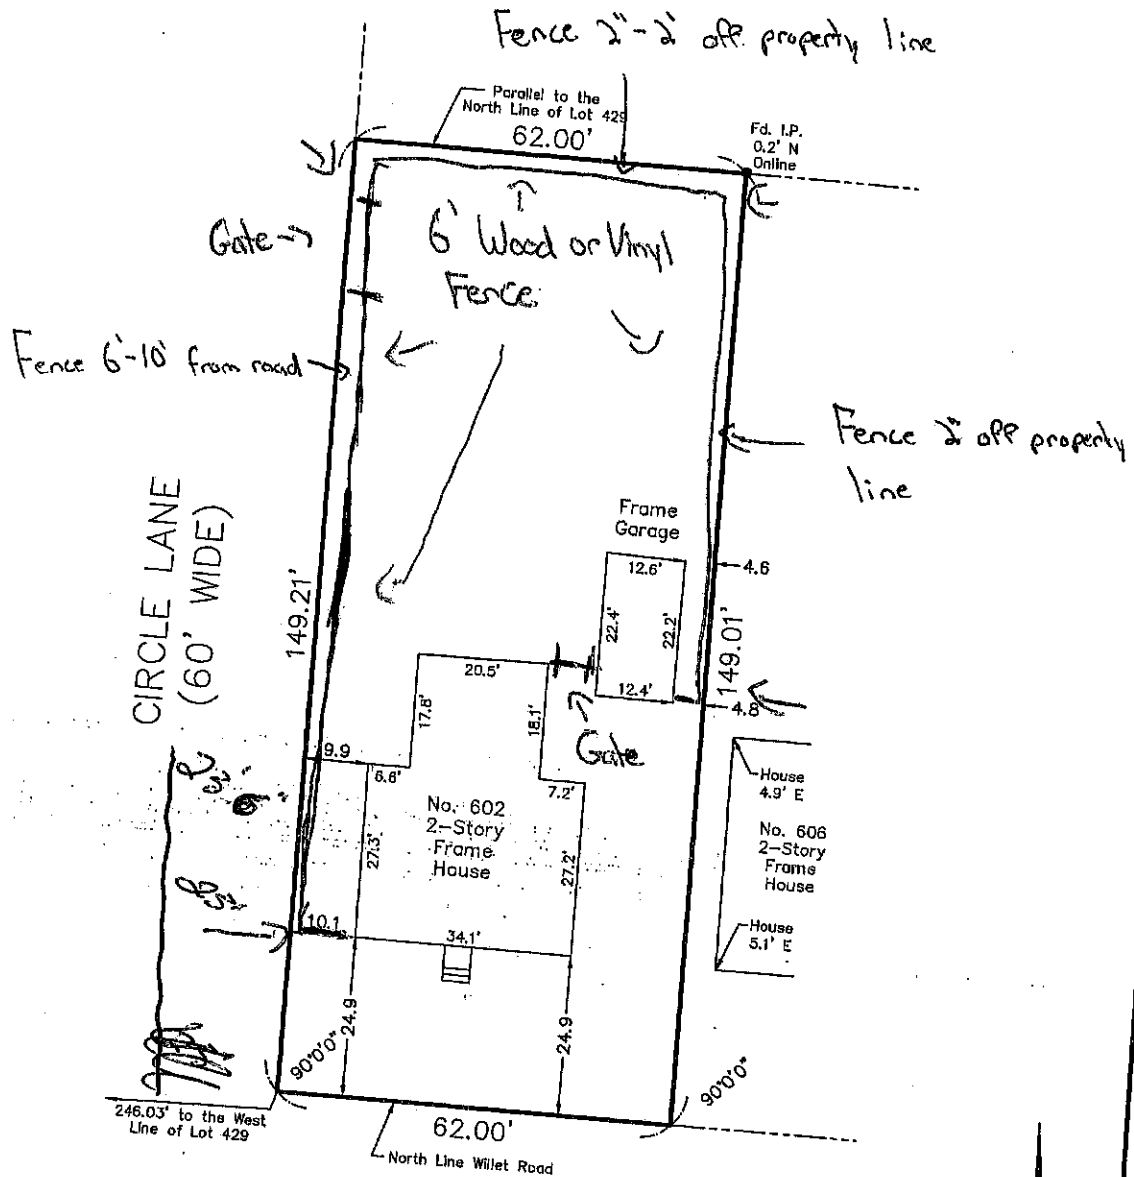 Fence 2"-2' off property line
Parallel to the
North Line of Lot 429
62.00'
Fd. I.P.
0.2' N
Online
Gate
6' Wood or Vinyl
Fence
Fence 6'-10' from road
Fence 2" off property
line
CIRCLE LANE
(60' WIDE)
149.21'
Frame
Garage
12.6'
4.6
22.4'
22.2'
149.01'
12.4'
4.8
20.5'
17.8'
18.1'
Gate
9.9
6.6'
7.2'
House
4.9' E
No. 602
2-Story
Frame
House
No. 606
2-Story
Frame
House
27.3'
27.2'
10.1
34.1'
House
5.1' E
24.9
24.9
90°0'0"
90°0'0"
246.03' to the West
Line of Lot 429
62.00'
North Line Willet Road